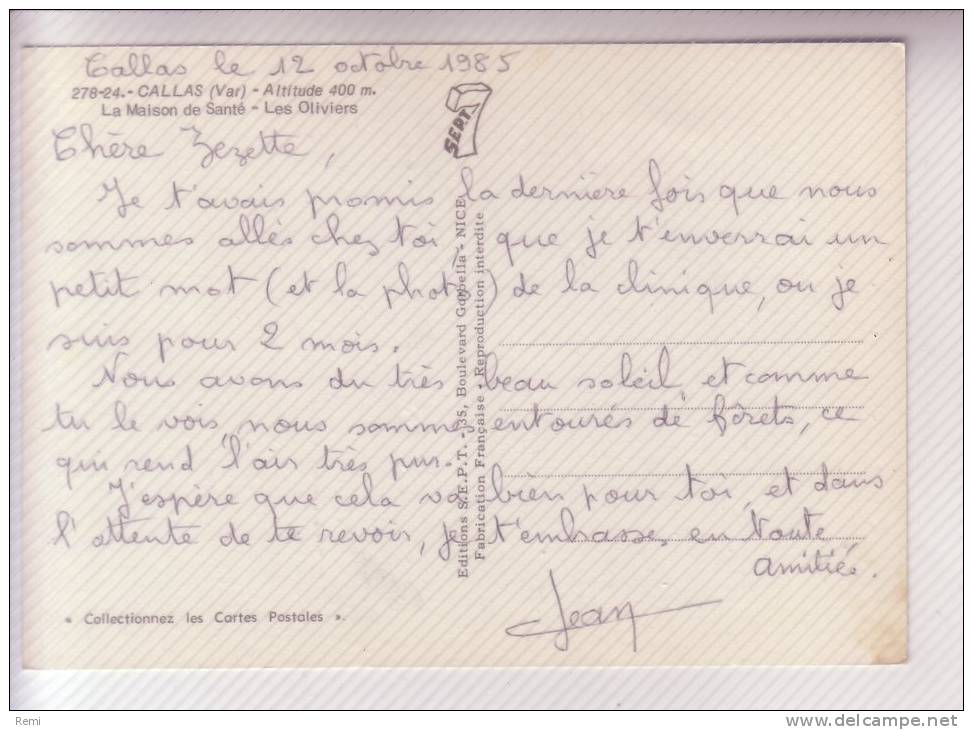 Callas le 12 octobre 1985
278-24.- CALLAS (Var) - Altitude 400 m.
La Maison de Santé - Les Oliviers
SEPT 7
Chère Zezette,
Je t'avais promis la dernière fois que nous
sommes allés chez toi, que je t'enverrai un
petit mot (et la photo) de la clinique, ou je
suis pour 2 mois.
Nous avons du très beau soleil, et comme
tu le vois, nous sommes entourés de fôrets, ce
qui rend l'air très pur.
J'espère que cela va bien pour toi, et dans
l'attente de te revoir, je t'embrasse, en toute
amitiés.
Jean
Editions S.E.P.T. - 35, Boulevard Gorbella - NICE
Fabrication Française - Reproduction interdite
« Collectionnez les Cartes Postales ».
Remi
delcampe.net